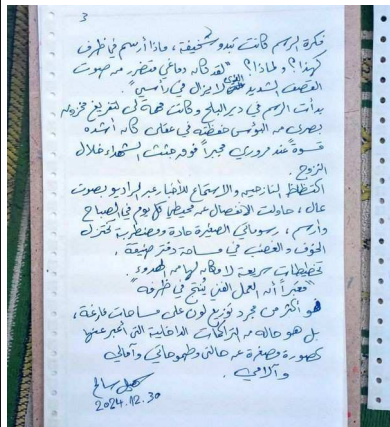 3
فكرة الرسم كانت تبدو سخيفة، ماذا أرسم في ظرف
كهذا؟ ولماذا؟ "لقد كان دماغي متضرر من صوت
القصف الشديد الذي لا يزال في رأسي".
بدأت الرسم في دير البلح وكانت مهمة لي لتفريغ مخزون
بصري من البؤس حفظته في عقلي كان أشده
قسوة عند مروري مجبراً فوق جثث الشهداء خلال
النزوح.
اكتظاظ النازحين والاستماع للأخبار عبر الراديو بصوت
عال، حاولت الانفصال عن محيطي كل يوم في الصباح
وأرسم، رسوماتي الصغيرة حادة ومضطربة تختزل
الخوف والغضب في مساحة دفتر ضيقة،
تخطيطات سريعة لا مكان لها من الهدوء.
"معتبراً أن العمل الفني يُنتج في ظرفه"
هو أكثر من مجرد توزيع لون على مساحات فارغة،
بل هو حالة من التراكمات الداخلية التي أعبر عنها
كصورة مصغرة عن حالتي وطموحاتي وآمالي
وآلامي.
سهيل سالم
2024.12.30